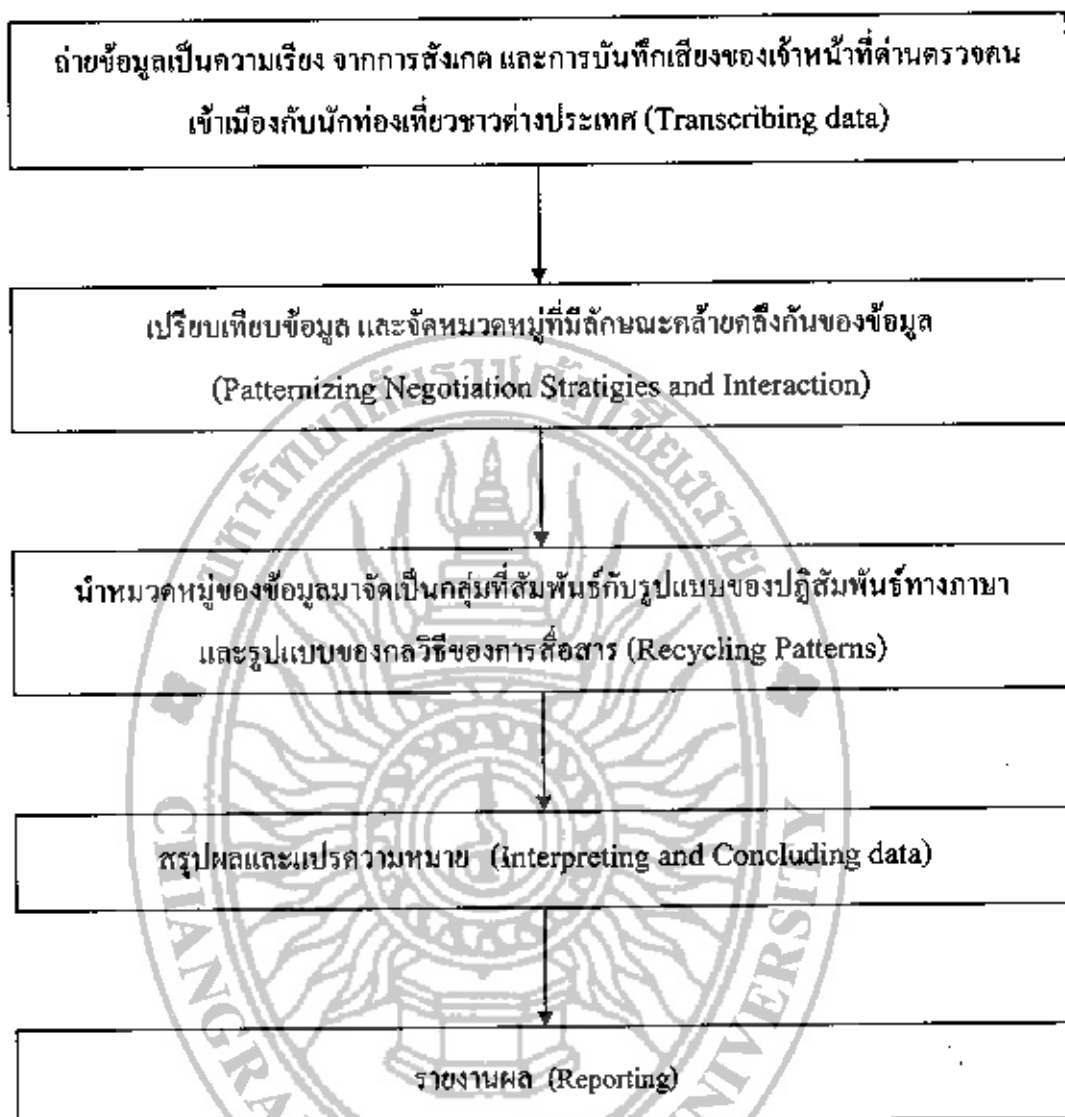 ถ่ายข้อมูลเป็นความเรียง จากการสังเกต และการบันทึกเสียงของเจ้าหน้าที่ด่านตรวจคน
เข้าเมืองกับนักท่องเที่ยวชาวต่างประเทศ (Transcribing data)
เปรียบเทียบข้อมูล และจัดหมวดหมู่ที่มีลักษณะคล้ายคลึงกันของข้อมูล
(Patternizing Negotiation Stratigies and Interaction)
นำหมวดหมู่ของข้อมูลมาจัดเป็นกลุ่มที่สัมพันธ์กับรูปแบบของปฏิสัมพันธ์ทางภาษา
และรูปแบบของกลวิธีของการสื่อสาร (Recycling Patterns)
สรุปผลและแปรความหมาย (Interpreting and Concluding data)
รายงานผล (Reporting)
มหาวิทยาลัยราชภัฏเชียงราย
CHIANGRA UNIVERSITY